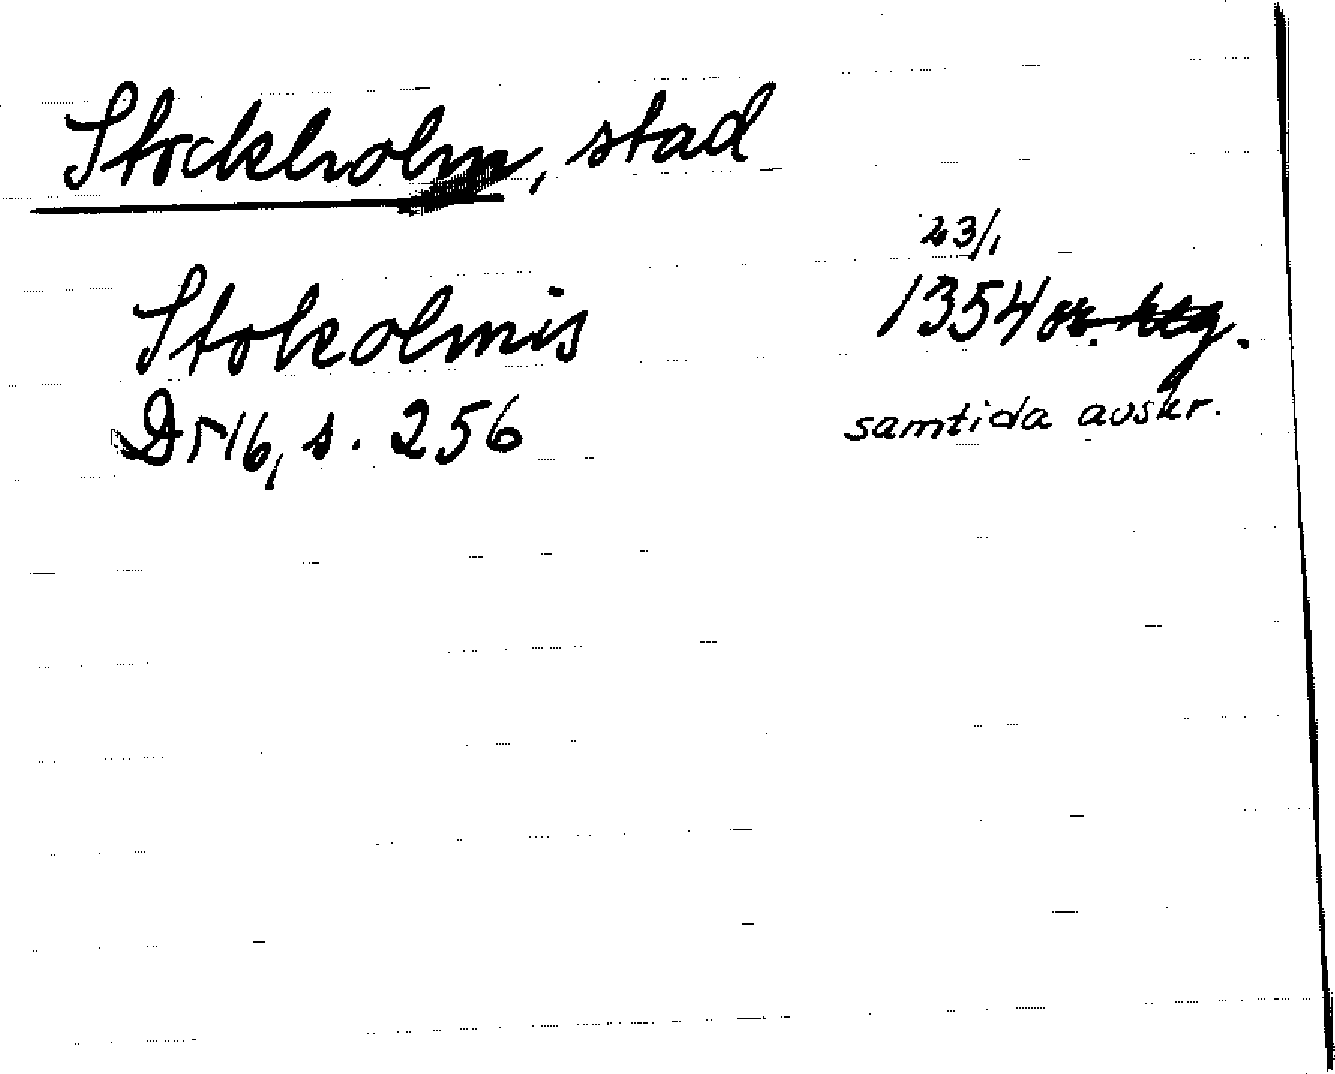 Stockholm, stad
23/1
Stokolmis 1354 or. htg.
Dr 16, s. 256 samtida avskr.